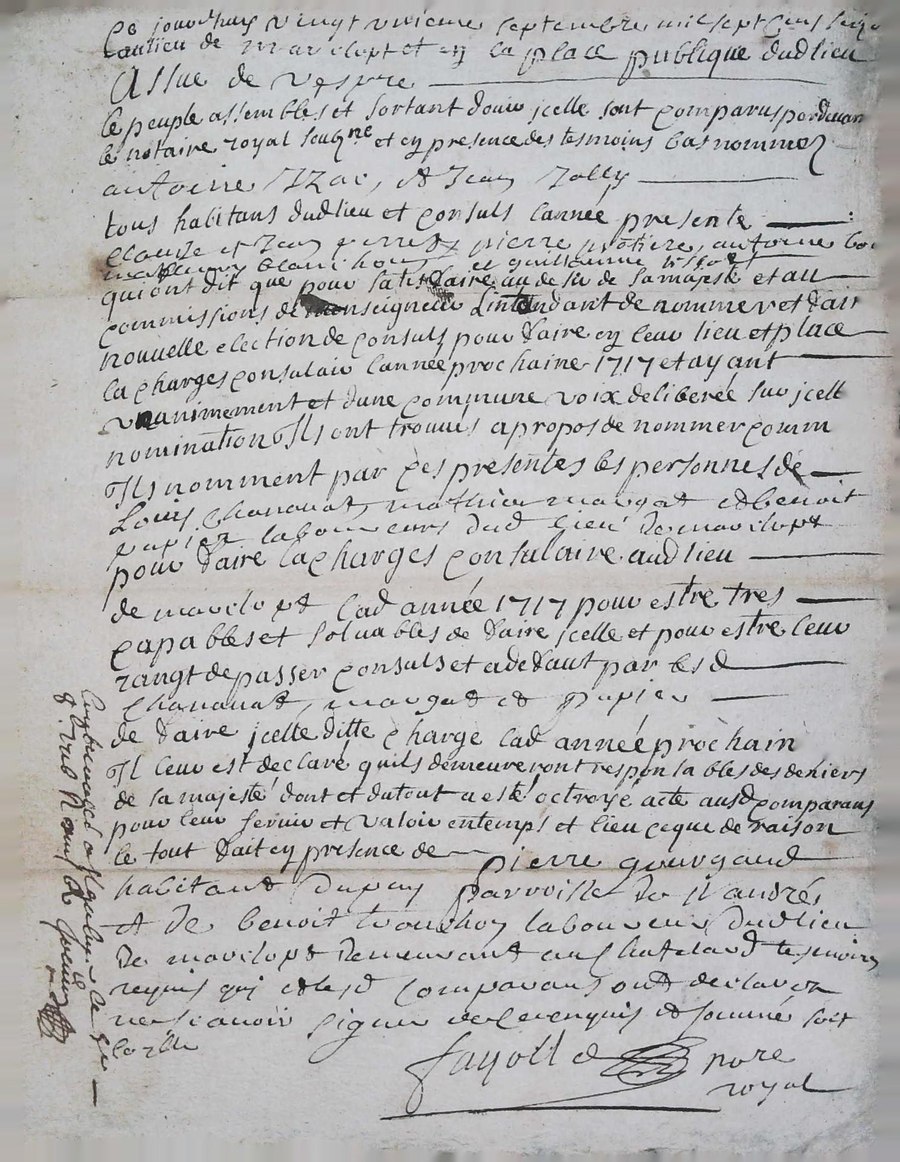 Ce jourdhuy vingt unieme septembre mil sept cens seize
au lieu de mavilopt et en la place publique dud lieu
Alssue de vespre
le peuple assembles et sortant douir jcelle sont comparus pardevan
le notaire royal soubs.ne et en presence des tesmoins bas nommez
antoine Izac, et Jean Jolly
tous habitans dud lieu et consuls lannée presente
claude et Jean pierre
blanchon et guillaume
qui ont dit que pour satisfaire au de sa majesté et au
commissions de monseigneur Lintendant de nommer et dan
nouvelle election de consuls pour faire en leur lieu et place
la charges consulair lannée prochaine 1717 et ayant
unanimement et dune commune voix deliberée sur jcell
nomination Ils ont trouvés apropos de nommer comm
Ils nomment par ces presentes les personnes de
Louis chananat, mathieu maugat et benoit
papier laboureurs dud lieu de mavilopt
pour faire la charges consulaire aud lieu
de mavilopt lad année 1717 pour estre tres
capables et soluables de faire jcelle et pour estre leur
rangt de passer consuls et a defaut par lesd
chananat, maugat et papier
de faire jcelle ditte charge lad année prochain
Il leur est declaré quils demeureront responsables des deniers
de sa majesté dont et du tout a esté octroyé acte ausd comparans
pour leur servir et valoir en temps et lieu ceque de raison
le tout fait en presence de pierre gourgaud
habitant dupuy parroisse de st andré
et de benoit tronchon laboureur dud lieu
de mavilopt demeurant au chatelard tesmoins
requis qui et lesd comparans ont declarer
ne scavoir signer de ce enquis et sommé soit
Fayolle nore
royal